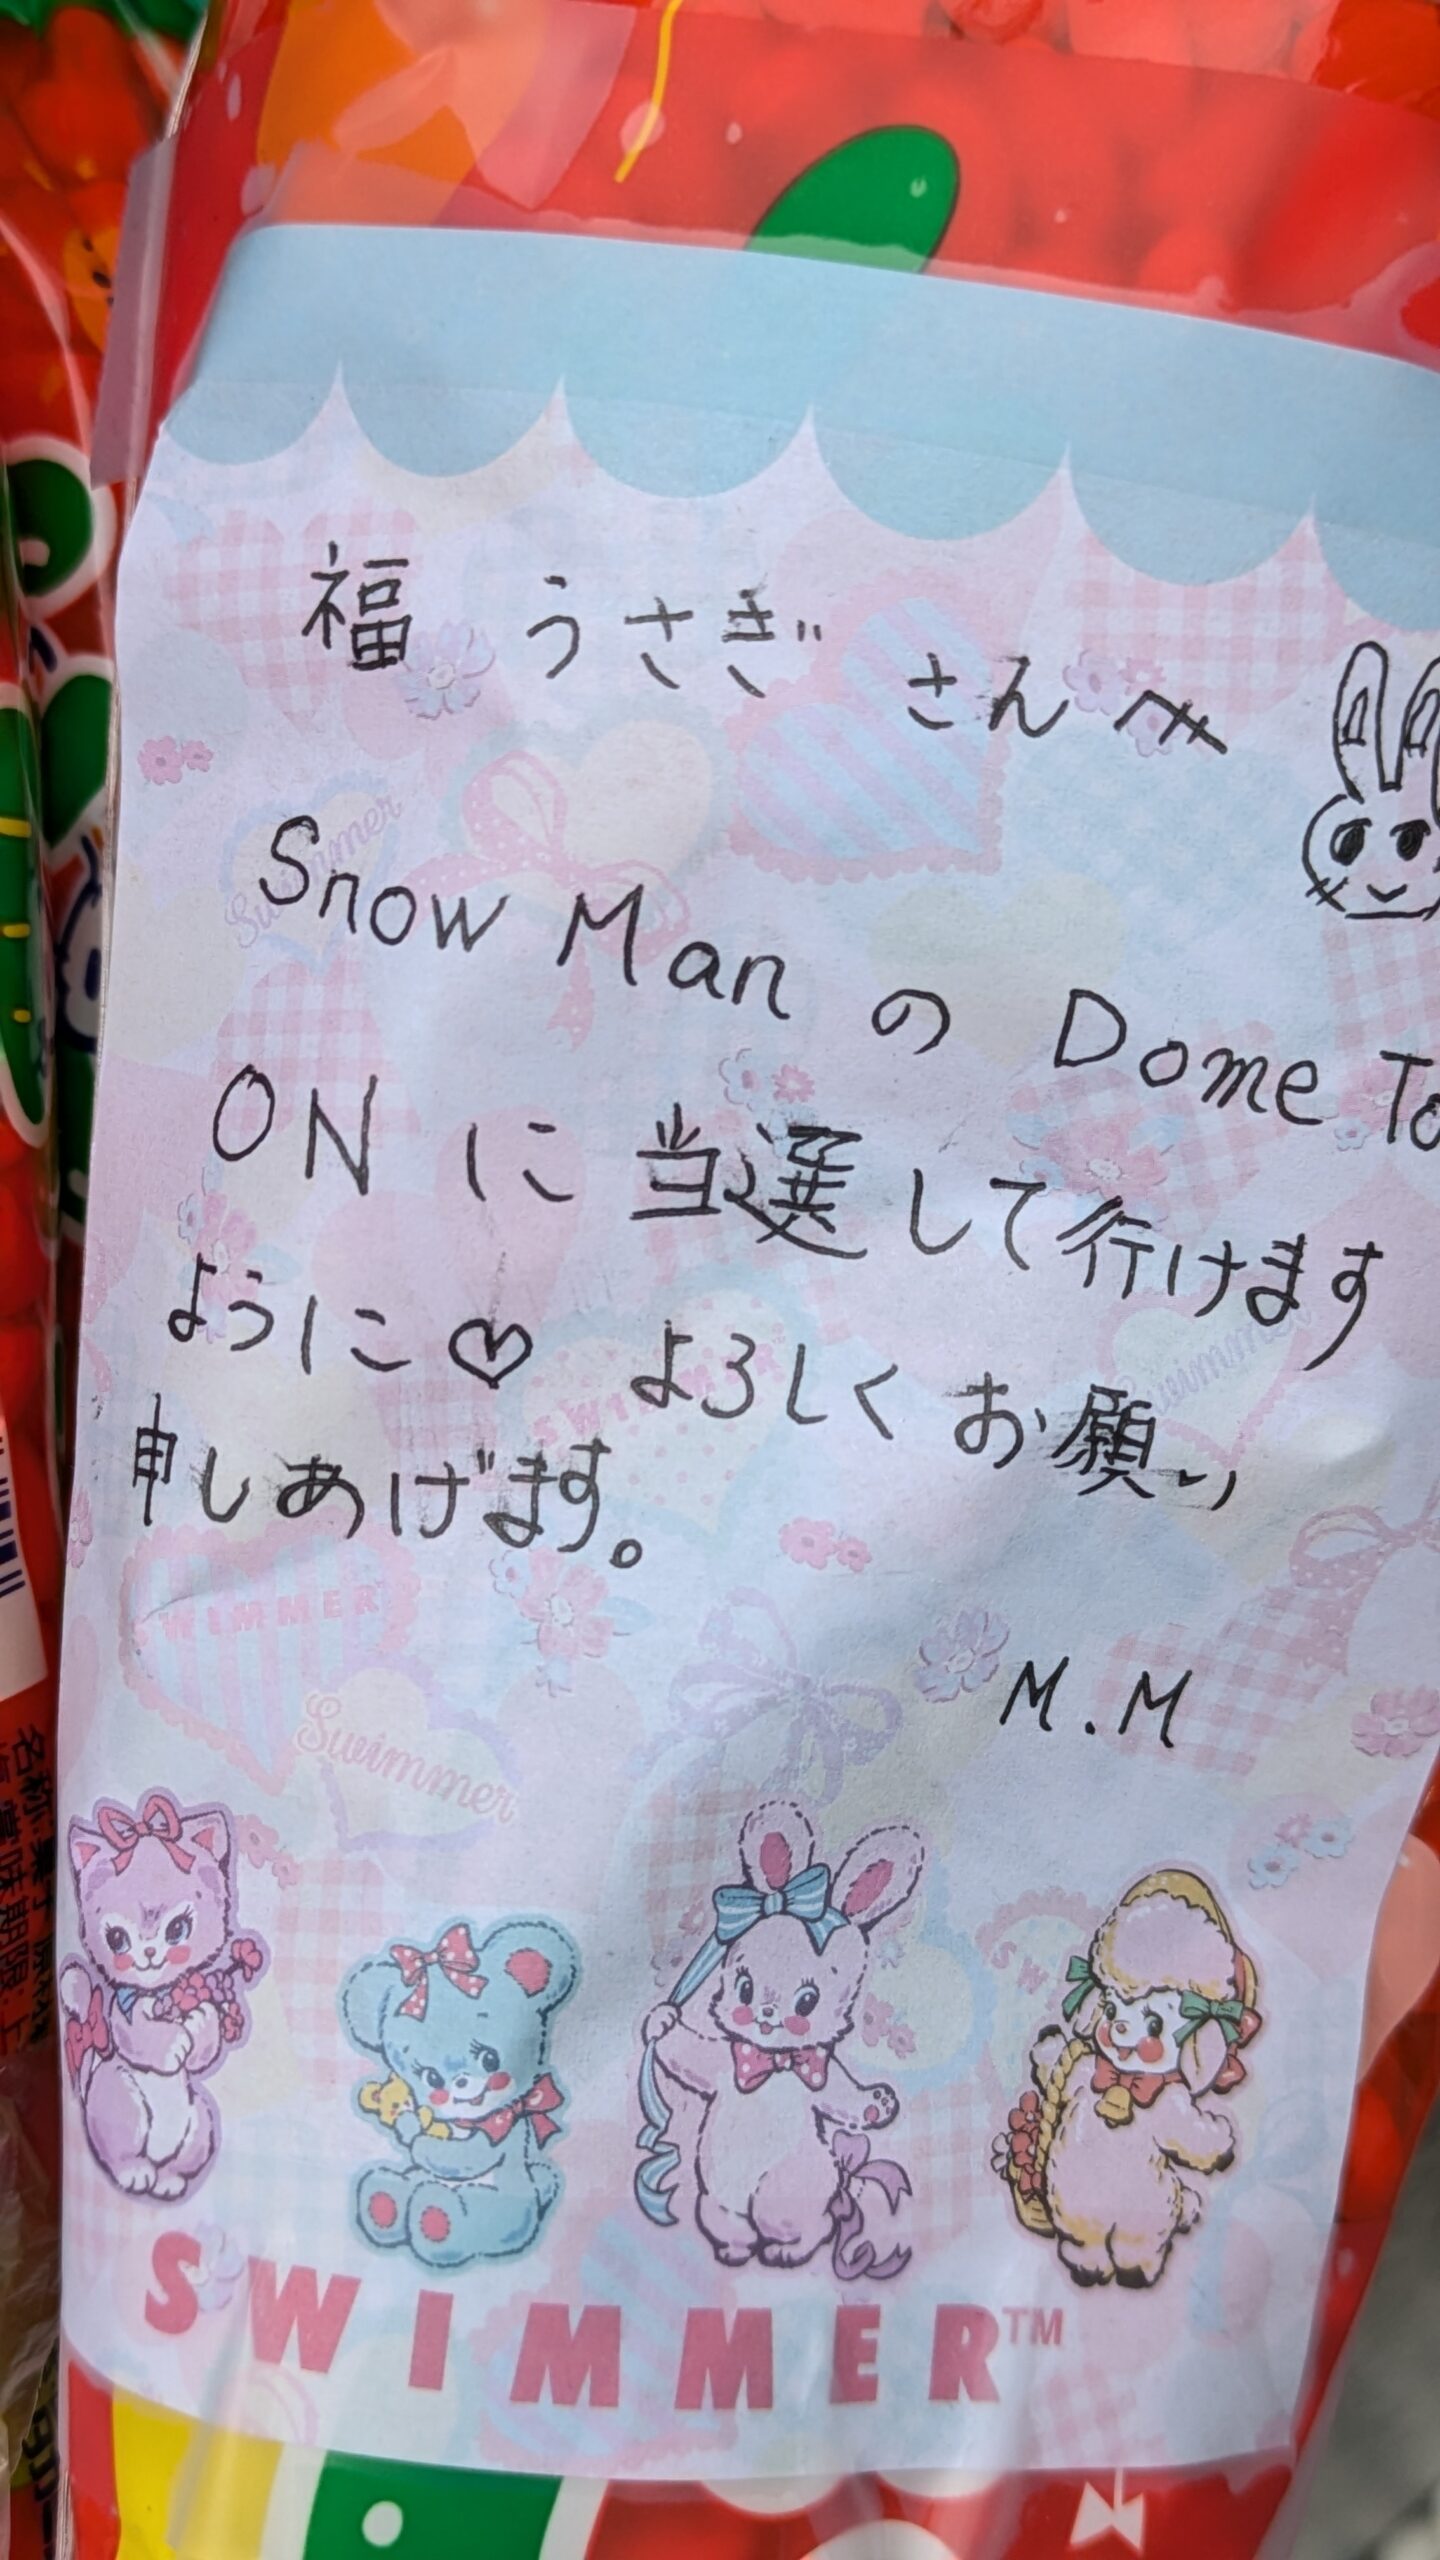 福 うさぎ さんへ
Snow Man の Dome To
ON に 当選して行けます
ように♡ よろしくお願い
申しあげます。
M.M
Swimmer
SWIMMER
Swimmer
SWIMMER
Swimmer
SWIMMER™